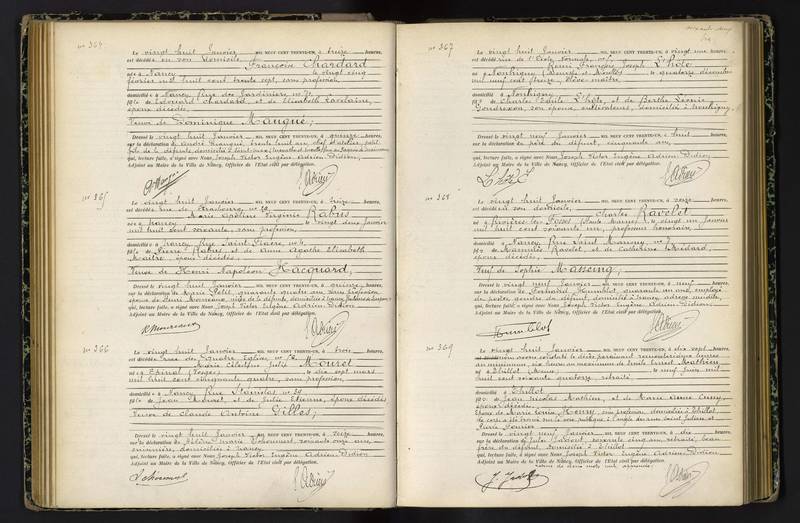 N° 364
Le vingt huit Janvier MIL NEUF CENT TRENTE-UN, à treize heures,
est décédée en son domicile Françoise Chardard
née à Nancy le vingt cinq
février mil huit cent trente sept, sans profession,
domiciliée à Nancy rue des Jardiniers n° 72
fille de Edouard Chardard, et de Elisabeth
époux décédés,
Veuve de Dominique Maugué;
Dressé le vingt huit Janvier MIL NEUF CENT TRENTE-UN, à quinze heures,
sur la déclaration de André Maugué, trente huit ans, chef d'atelier, petit
fils de la défunte, domicilié à
qui, lecture faite, a signé avec Nous Joseph Victor Eugène Adrien Didion,
Adjoint au Maire de la Ville de Nancy, Officier de l'Etat civil par délégation.
N° 365
Le vingt huit Janvier MIL NEUF CENT TRENTE-UN, à treize heures,
est décédée rue de Strasbourg
Marie Apoline Virginie Rabus
née à Nancy le vingt deux Janvier
mil huit cent soixante, sans profession,
domiciliée à Nancy rue Saint Fiacre n° 4,
fille de Pierre Rabus, et de Anne Agathe Elisabeth
Maitre, époux décédés,
Veuve de Henri Napoléon Hacquard;
Dressé le vingt huit Janvier MIL NEUF CENT TRENTE-UN, à quinze heures,
sur la déclaration de Marie Petit, quarante quatre ans, sans profession,
épouse de Henri
qui, lecture faite, a signé avec Nous Joseph Victor Eugène Adrien Didion
Adjoint au Maire de la Ville de Nancy, Officier de l'Etat civil par délégation.
N° 366
Le vingt huit Janvier MIL NEUF CENT TRENTE-UN, à trois heures,
est décédée rue des Quatre Eglises
Marie Célestine Julie Mouret
née à Epinal (Vosges) le dix sept mars
mil huit cent cinquante quatre, sans profession,
domiciliée à Nancy Rue Stanislas n° 29
fille de Jean Mouret, et de Julie Etienne, époux décédés
Veuve de Claude Antoine Gilles;
Dressé le vingt huit Janvier MIL NEUF CENT TRENTE-UN, à seize heures,
sur la déclaration de Hélène Marie soixante onze ans,
domiciliée à Nancy
qui, lecture faite, a signé avec Nous Joseph Victor Eugène Adrien Didion
Adjoint au Maire de la Ville de Nancy, Officier de l'Etat civil par délégation.
N° 367
Le vingt huit Janvier MIL NEUF CENT TRENTE-UN, à vingt une heures,
est décédé rue de l'Ecole Normale n° 1,
Remi François Joseph L'hôte
né à Nonhigny (Meurthe et Moselle) le quatorze décembre
mil neuf cent treize, élève maître,
domicilié à Nonhigny
fils de Charles Emile L'hôte, et de Berthe Léonie
Goudrexon, son épouse, cultivateurs, domiciliés à Nonhigny,
Dressé le vingt neuf Janvier MIL NEUF CENT TRENTE-UN, à huit heures,
sur la déclaration du père du défunt, cinquante ans,
qui, lecture faite, a signé avec Nous Joseph Victor Eugène Adrien Didion
Adjoint au Maire de la Ville de Nancy, Officier de l'Etat civil par délégation.
N° 368
Le vingt huit Janvier MIL NEUF CENT TRENTE-UN, à onze heures,
est décédé en son domicile, Charles Ravelet
né à le vingt un Janvier
mil huit cent soixante un, professeur honoraire,
domicilié à Nancy, Rue Saint Mansuy n° 7
fils de Mammès Ravelet, et de Catherine Médard,
époux décédés,
Veuf de Sophie Massing;
Dressé le vingt neuf Janvier MIL NEUF CENT TRENTE-UN, à neuf heures,
sur la déclaration de Fernand Humblot, quarante un ans, employé
de postes, gendre du défunt, domicilié à Nancy
qui, lecture faite, a signé avec Nous Joseph Victor Eugène Adrien Didion
Adjoint au Maire de la Ville de Nancy, Officier de l'Etat civil par délégation.
N° 369
Le vingt huit Janvier MIL NEUF CENT TRENTE-UN, à dix sept heures,
avons constaté le décès paraissant remonter à
au minimum, six heures au maximum de Emile Ernest Mathieu
né à Thillot (Meuse) le neuf Juin mil
huit cent soixante quatorze, retraité,
domicilié à Thillot
fils de Jean Nicolas Mathieu, et de Marie Anne Cuny,
époux décédés,
époux de Marie Louise Henry, sans profession, domiciliée à Thillot,
Le corps a été trouvé sur la voie publique à l'angle des rues Saint Julien et
Pierre Fourier
Dressé le vingt neuf Janvier MIL NEUF CENT TRENTE-UN, à dix heures,
sur la déclaration de Jules soixante cinq ans, retraité, beau
frère du défunt, domicilié à Thillot
qui, lecture faite, a signé avec Nous Joseph Victor Eugène Adrien Didion
Adjoint au Maire de la Ville de Nancy, Officier de l'Etat civil par délégation.